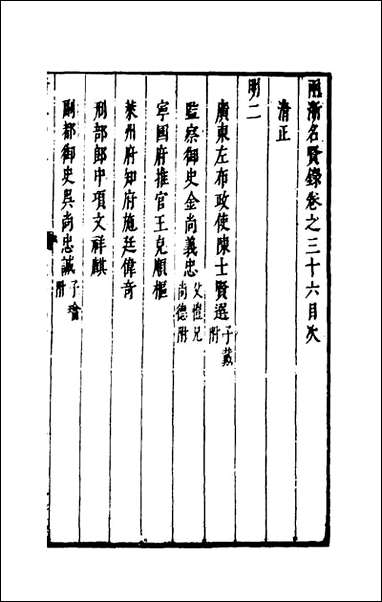 兩浙名賢錄卷之三十六目次
清正
明二
廣東左布政使陳士賢選子戴附
監察御史金尚義忠父愷兄尚德附
寧國府推官王克順樞
萊州府知府施廷偉奇
刑部郎中項文祥麒
副都御史吳尚忠誠子璿附